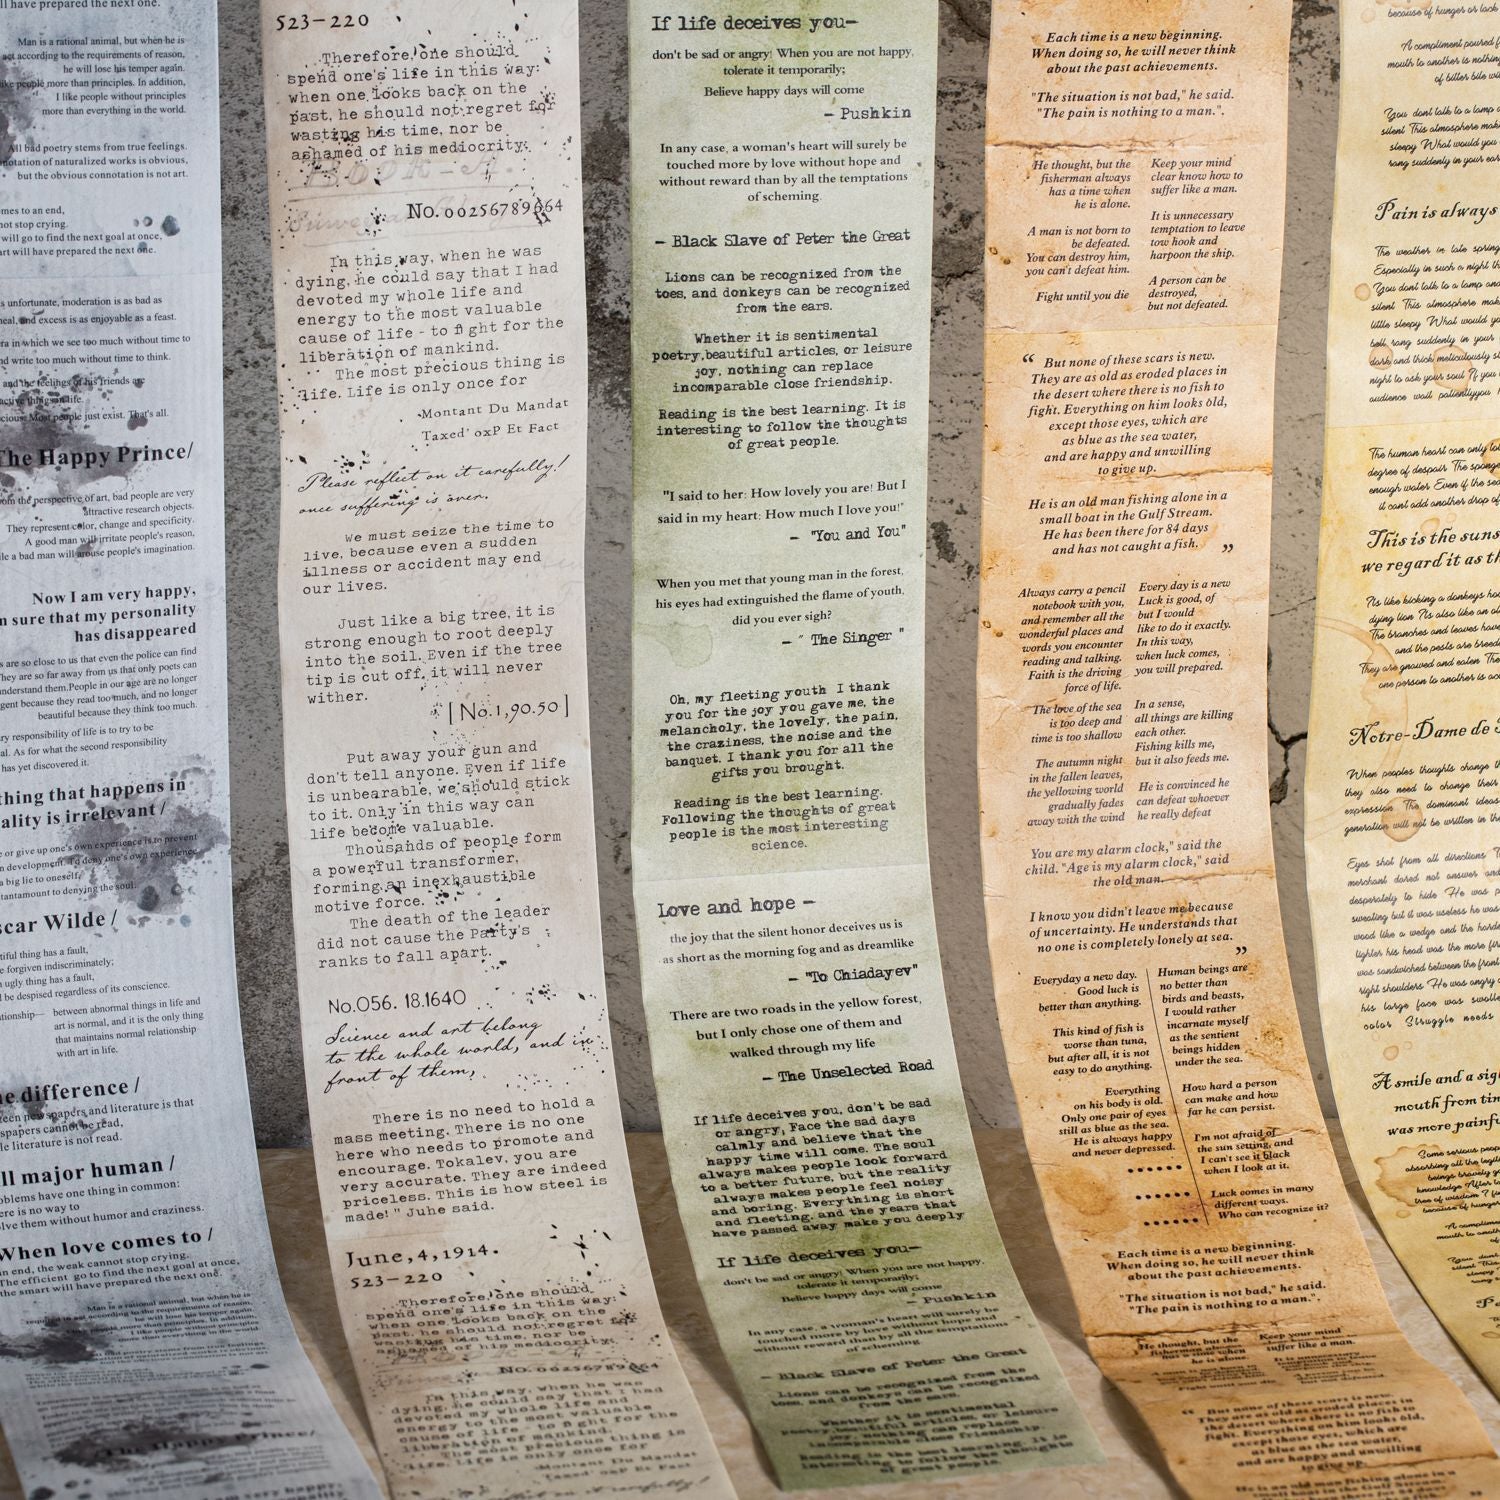 ll have prepared the next voice.
Man is a rational animal, but when he is
act according to the requirements of reason,
he will lose his temper again.
like people more than principles. In addition,
I like people without principles
more than everything in the world.
All bad poetry stems from true feelings.
notation of naturalized works is obvious,
but the obvious connotation is not art.
omes to an end,
not stop crying.
will go to find the next goal at once,
art will have prepared the next one.
s unfortunate, moderation is as bad as
meal, and excess is as enjoyable as a feast.
era in which we see too much without time to
nd write too much without time to think.
and the feelings of his friends are
active things in life.
cious. Most people just exist. That's all.
The Happy Prince/
om the perspective of art, bad people are very
attractive research objects.
They represent color, change and specificity.
A good man will irritate people's reason,
le a bad man will arouse people's imagination.
Now I am very happy,
m sure that my personality
has disappeared
s are so close to us that even the police can find
They are so far away from us that only poets can
understand them.People in our age are no longer
gent because they read too much, and no longer
beautiful because they think too much.
ry responsibility of life is to try to be
al. As for what the second responsibility
has yet discovered it.
thing that happens in
ality is irrelevant /
e or give up one's own experience is to prevent
n development. To deny one's own experience
a big lie to oneself,
tantamount to denying the soul.
scar Wilde /
tiful thing has a fault,
e forgiven indiscriminately;
n ugly thing has a fault,
l be despised regardless of its conscience.
ationship— between abnormal things in life and
art is normal, and it is the only thing
that maintains normal relationship
with art in life.
he difference /
een newspapers and literature is that
wspapers cannot be read,
le literature is not read.
ll major human /
oblems have one thing in common:
ere is no way to
lve them without humor and craziness.
When love comes to /
an end, the weak cannot stop crying.
The efficient go to find the next goal at once,
the smart will have prepared the next one.
Man is a rational animal, but when he is
required to act according to the requirements of reason,
he will lose his temper again.
I like people more than principles. In addition,
I like people without principles
more than everything in the world.
The Happy Prince/
523-220
Therefore, one should
spend one's life in this way:
when one looks back on the
past, he should not regret for
wasting his time, nor be
ashamed of his mediocrity;
No. 00256789664
In this way, when he was
dying, he could say that I had
devoted my whole life and
energy to the most valuable
cause of life - to fight for the
liberation of mankind.
The most precious thing is
life. Life is only once for
Montant Du Mandat
Taxed' oxP Et Fact
Please reflect on it carefully!
once suffering is over.
We must seize the time to
live, because even a sudden
illness or accident may end
our lives.
Just like a big tree, it is
strong enough to root deeply
into the soil. Even if the tree
tip is cut off, it will never
wither.
[ No.1,90.50 ]
Put away your gun and
don't tell anyone. Even if life
is unbearable, we should stick
to it. Only in this way can
life become valuable.
Thousands of people form
a powerful transformer,
forming an inexhaustible
motive force.
The death of the leader
did not cause the Party's
ranks to fall apart.
No.056. 18.1640
Science and art belong
to the whole world, and in
front of them,
There is no need to hold a
mass meeting. There is no one
here who needs to promote and
encourage. Tokalev, you are
very accurate. They are indeed
priceless. This is how steel is
made! " Juhe said.
June,4,1914.
523-220
Therefore, one should
spend one's life in this way:
when one looks back on the
past, he should not regret for
wasting his time, nor be
ashamed of his mediocrity;
No. 00256789664
In this way, when he was
dying, he could say that I had
devoted my whole life and
energy to the most valuable
cause of life - to fight for the
liberation of mankind.
The most precious thing is
life. Life is only once for
Montant Du Mandat
Taxed' oxP Et Fact
If life deceives you—
don't be sad or angry! When you are not happy,
tolerate it temporarily;
Believe happy days will come
— Pushkin
In any case, a woman's heart will surely be
touched more by love without hope and
without reward than by all the temptations
of scheming.
— Black Slave of Peter the Great
Lions can be recognized from the
toes, and donkeys can be recognized
from the ears.
Whether it is sentimental
poetry,beautiful articles, or leisure
joy, nothing can replace
incomparable close friendship.
Reading is the best learning. It is
interesting to follow the thoughts
of great people.
"I said to her: How lovely you are! But I
said in my heart: How much I love you!"
— "You and You"
When you met that young man in the forest,
his eyes had extinguished the flame of youth,
did you ever sigh?
— " The Singer "
Oh, my fleeting youth I thank
you for the joy you gave me, the
melancholy, the lovely, the pain,
the craziness, the noise and the
banquet. I thank you for all the
gifts you brought.
Reading is the best learning.
Following the thoughts of great
people is the most interesting
science.
Love and hope —
the joy that the silent honor deceives us is
as short as the morning fog and as dreamlike
— "To Chiadayev"
There are two roads in the yellow forest,
but I only chose one of them and
walked through my life
— The Unselected Road
If life deceives you, don't be sad
or angry, Face the sad days
calmly and believe that the
happy time will come. The soul
always makes people look forward
to a better future, but the reality
always makes people feel noisy
and boring. Everything is short
and fleeting, and the years that
have passed away make you deeply
If life deceives you—
don't be sad or angry! When you are not happy,
tolerate it temporarily;
Believe happy days will come
— Pushkin
In any case, a woman's heart will surely be
touched more by love without hope and
without reward than by all the temptations
of scheming.
— Black Slave of Peter the Great
Lions can be recognized from the
toes, and donkeys can be recognized
from the ears.
Whether it is sentimental
poetry,beautiful articles, or leisure
joy, nothing can replace
incomparable close friendship.
Reading is the best learning. It is
interesting to follow the thoughts
of great people.
Each time is a new beginning.
When doing so, he will never think
about the past achievements.
"The situation is not bad," he said.
"The pain is nothing to a man.".
He thought, but the
fisherman always
has a time when
he is alone.
A man is not born to
be defeated.
You can destroy him,
you can't defeat him.
Fight until you die
Keep your mind
clear know how to
suffer like a man.
It is unnecessary
temptation to leave
tow hook and
harpoon the ship.
A person can be
destroyed,
but not defeated.
“ But none of these scars is new.
They are as old as eroded places in
the desert where there is no fish to
fight. Everything on him looks old,
except those eyes, which are
as blue as the sea water,
and are happy and unwilling
to give up.
He is an old man fishing alone in a
small boat in the Gulf Stream.
He has been there for 84 days
and has not caught a fish. ”
Always carry a pencil
notebook with you,
and remember all the
wonderful places and
words you encounter
reading and talking.
Faith is the driving
force of life.
The love of the sea
is too deep and
time is too shallow
The autumn night
in the fallen leaves,
the yellowing world
gradually fades
away with the wind
Every day is a new
Luck is good, of
but I would
like to do it exactly.
In this way,
when luck comes,
you will prepared.
In a sense,
all things are killing
each other.
Fishing kills me,
but it also feeds me.
He is convinced he
can defeat whoever
he really defeat
You are my alarm clock," said the
child. "Age is my alarm clock," said
the old man.
I know you didn't leave me because
of uncertainty. He understands that
no one is completely lonely at sea. ”
Everyday a new day.
Good luck is
better than anything.
This kind of fish is
worse than tuna,
but after all, it is not
easy to do anything.
Everything
on his body is old.
Only one pair of eyes
still as blue as the sea.
He is always happy
and never depressed.
Human beings are
no better than
birds and beasts,
I would rather
incarnate myself
as the sentient
beings hidden
under the sea.
How hard a person
can make and how
far he can persist.
I'm not afraid of
the sun setting, and
I can't see it black
when I look at it.
Luck comes in many
different ways.
Who can recognize it?
Each time is a new beginning.
When doing so, he will never think
about the past achievements.
"The situation is not bad," he said.
"The pain is nothing to a man.".
He thought, but the
fisherman always
he is alone.
Keep your mind
suffer like a man.
“ But none of these scars is new.
They are as old as eroded places in
the desert where there is no fish to
fight. Everything on him looks old,
except those eyes, which are
as blue as the sea water,
and are happy and unwilling
to give up.
He is an old man fishing alone in a
small boat in the Gulf Stream.
because of hunger or lack
A compliment poured f
mouth to another is nothing
of bitter bile wi
You dont talk to a lamp a
silent This atmosphere mak
sleepy What would you
rang suddenly in your ears
Pain is always
The weather in late spring
Especially in such a night th
You dont talk to a lamp and
silent This atmosphere mak
little sleepy What would yo
bell rang suddenly in your
dark and thick meticulously s
night to ask your soul If yo
audience wait patiently
The human heart can only tol
degree of despair The sponge
enough water Even if the sea
it cant add another drop of
This is the suns
we regard it as th
Its like kicking a donkeys hoo
dying lion Its also like an ol
The branches and leaves have
and the pests are breedi
They are gnawed and eaten The
one person to another is ac
Notre-Dame de
When peoples thoughts change th
they also need to change their
expression The dominant ideas
generation will not be written in the
Eyes shot from all directions T
merchant dared not answer and
desperately to hide He was p
sweating but it was useless he was
wood like a wedge and the harde
tighter his head was the more fir
was sandwiched between the front
right shoulders He was angry
his large face was swolle
color Struggle needs
A smile and a sig
mouth from tim
was more painfu
Some serious peop
absorbing all the legiti
beings bravely g
knowledge After
tree of wisdom I f
because of hunger
A complime
mouth to anoth
of
You don
silent T
sleepy
rang